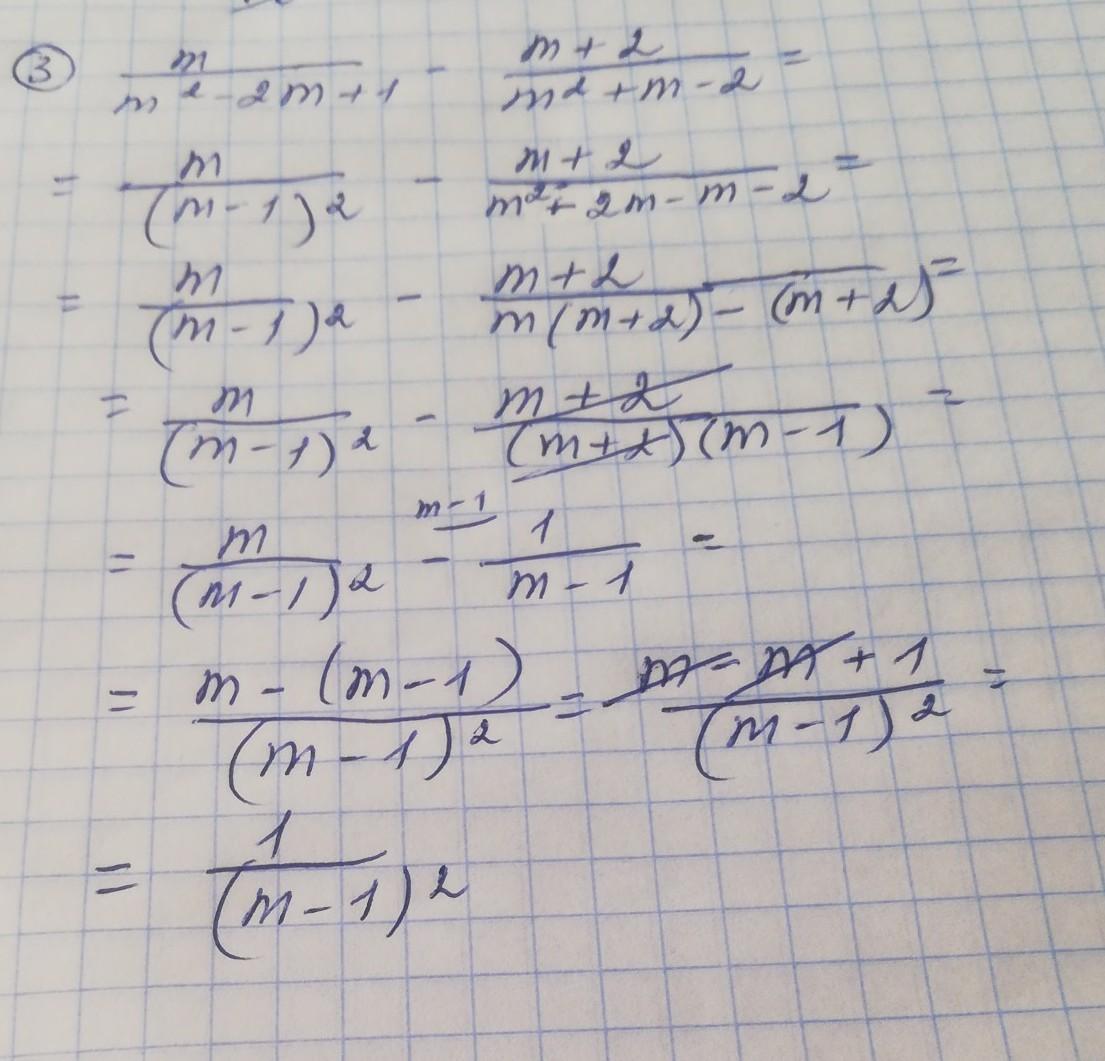 ③ m/(m² - 2m + 1) - (m + 2)/(m² + m - 2) =
= m/(m - 1)² - (m + 2)/(m² + 2m - m - 2) =
= m/(m - 1)² - (m + 2)/(m(m + 2) - (m + 2)) =
= m/(m - 1)² - (m + 2)/((m + 2)(m - 1)) =
= m/(m - 1)² - 1/(m - 1) ^(m - 1) =
= (m - (m - 1))/(m - 1)² = (m - m + 1)/(m - 1)² =
= 1/(m - 1)²